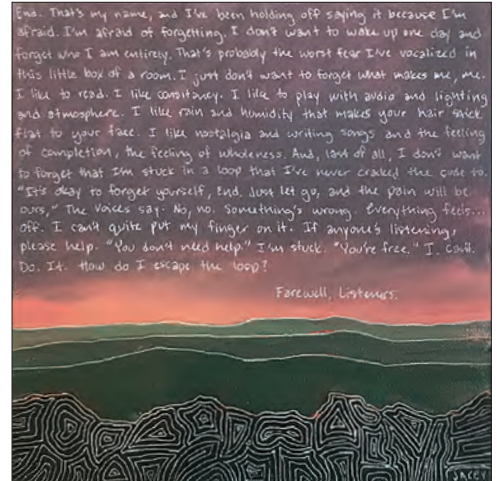 End. That's my name, and I've been holding off saying it because I'm
afraid. I'm afraid of forgetting. I don't want to wake up one day and
forget who I am entirely. That's probably the worst fear I've vocalized in
this little box of a room. I just don't want to forget what makes me, me.
I like to read. I like consitancy. I like to play with audio and lighting
and atmosphere. I like rain and humidity that makes your hair stick
flat to your face. I like nostalgia and writing songs and the feeling
of completion, the feeling of wholeness. And, last of all, I don't want
to forget that I'm stuck in a loop that I've never craked the code to.
"It's okay to forget yourself, End. Just let go, and the pain will be
ours," The voices say. No, no. Something's wrong. Everything feels...
off. I can't quite put my finger on it. If anyone's listening,
please help. "You don't need help." I'm stuck. "You're free." I. Can't.
Do. It. How do I escape the loop?
Farewell, Listeners.
JACEY